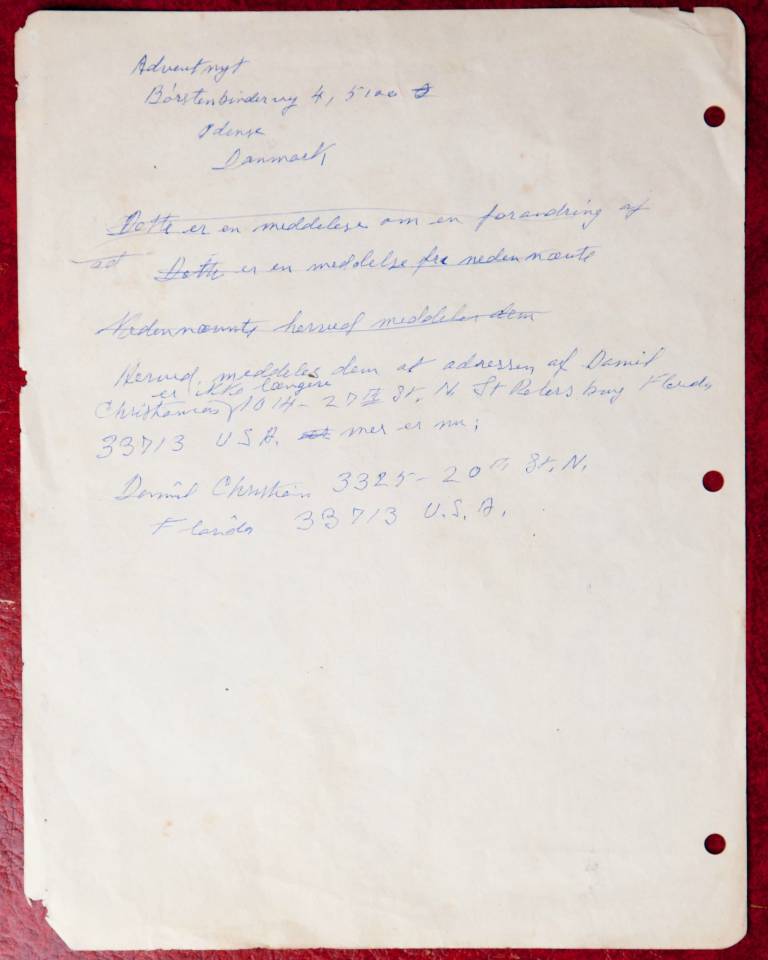 Adventnyt
Börstenbindervej 4, 5100 O
Odense
Danmark
Dette er en meddelese om en forandring af
at Dette er en meddelse fra nedennævnte
Nedennævnte herved meddeles dem
Herved meddeles dem at adressen af Daniel
er ikke længere
Christiansen 1014 - 27th St. N. St Petersburg Florida
33713 U S A. mer er nu;
Daniel Christian 3325 - 20th St. N.
Florida 33713 U.S.A.